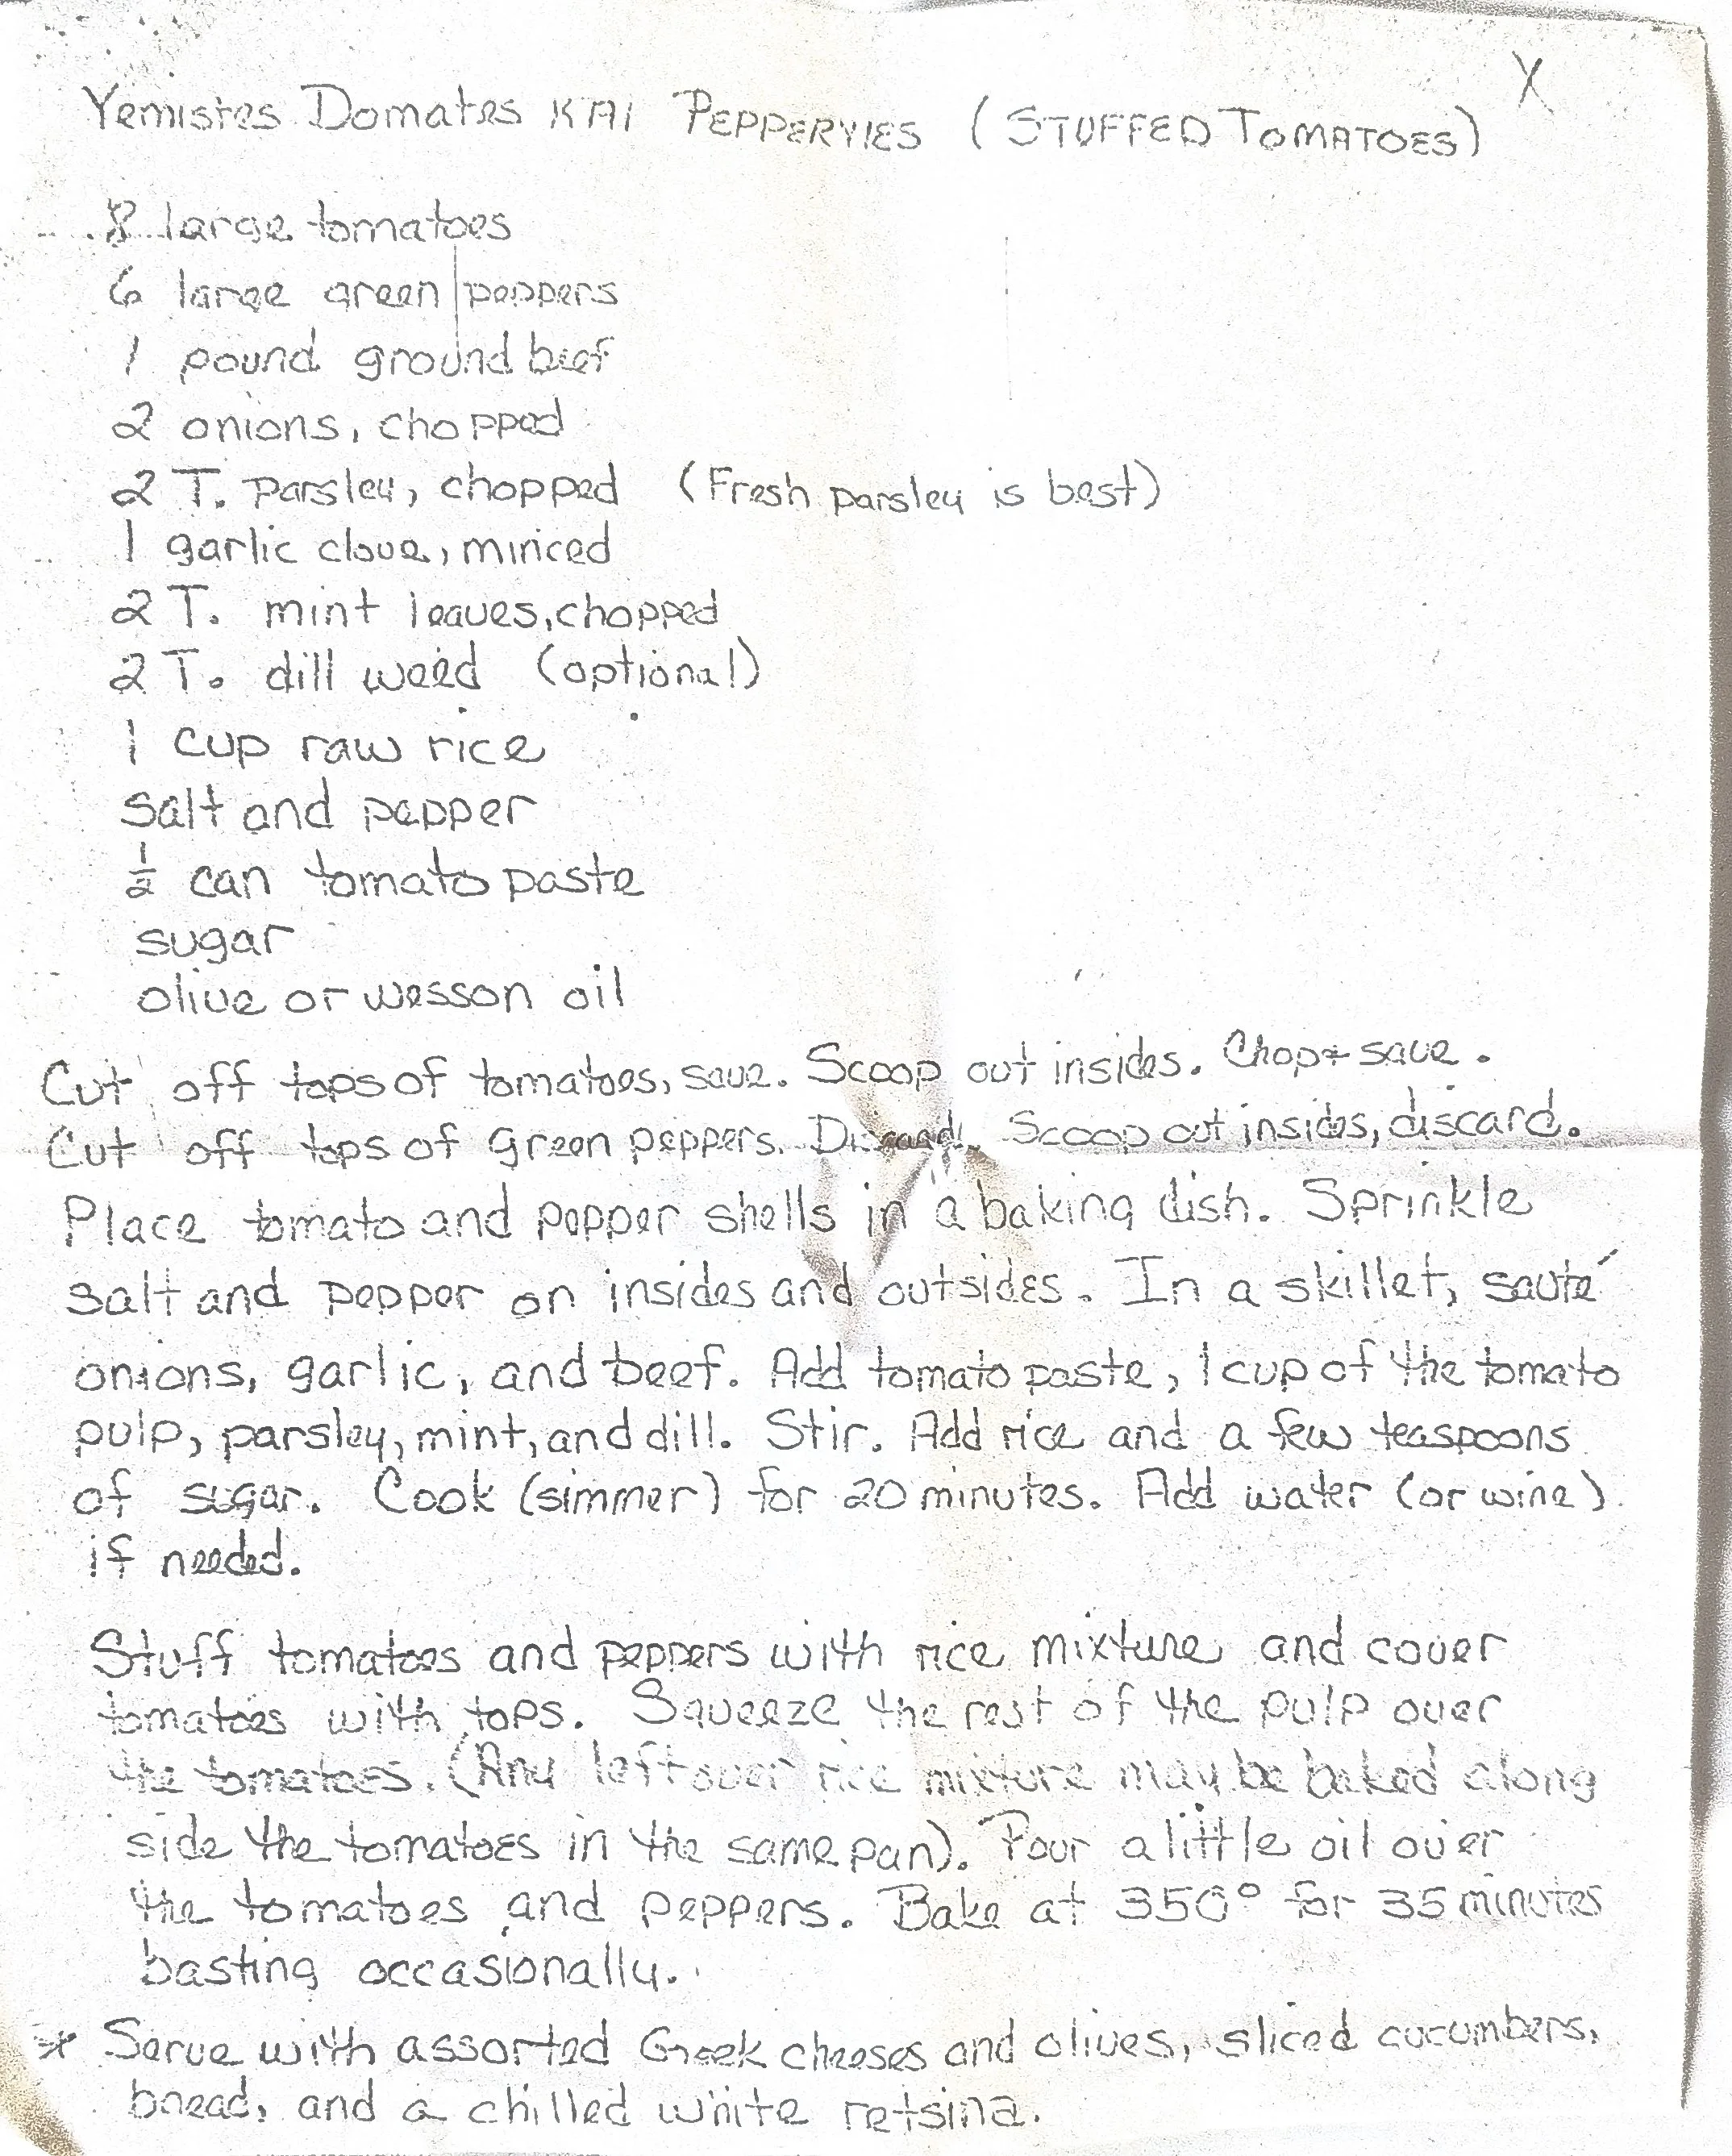 X
Yemistes Domates KAI PEPPERYIES (STUFFED TOMATOES)
8 large tomatoes
6 large green peppers
1 pound ground beef
2 onions, chopped
2 T. parsley, chopped (Fresh parsley is best)
1 garlic clove, minced
2 T. mint leaves, chopped
2 T. dill weed (optional)
1 cup raw rice
salt and pepper
½ can tomato paste
sugar
olive or wesson oil
Cut off tops of tomatoes, save. Scoop out insides. Chop & save.
Cut off tops of green peppers. Discard. Scoop out insides, discard.
Place tomato and pepper shells in a baking dish. Sprinkle
salt and pepper on insides and outsides. In a skillet, sauté
onions, garlic, and beef. Add tomato paste, 1 cup of the tomato
pulp, parsley, mint, and dill. Stir. Add rice and a few teaspoons
of sugar. Cook (simmer) for 20 minutes. Add water (or wine)
if needed.
Stuff tomatoes and peppers with rice mixture and cover
tomatoes with tops. Squeeze the rest of the pulp over
the tomatoes. (Any leftover rice mixture may be baked along
side the tomatoes in the same pan). Pour a little oil over
the tomatoes and peppers. Bake at 350° for 35 minutes
basting occasionally.
* Serve with assorted Greek cheeses and olives, sliced cucumbers,
bread, and a chilled white retsina.